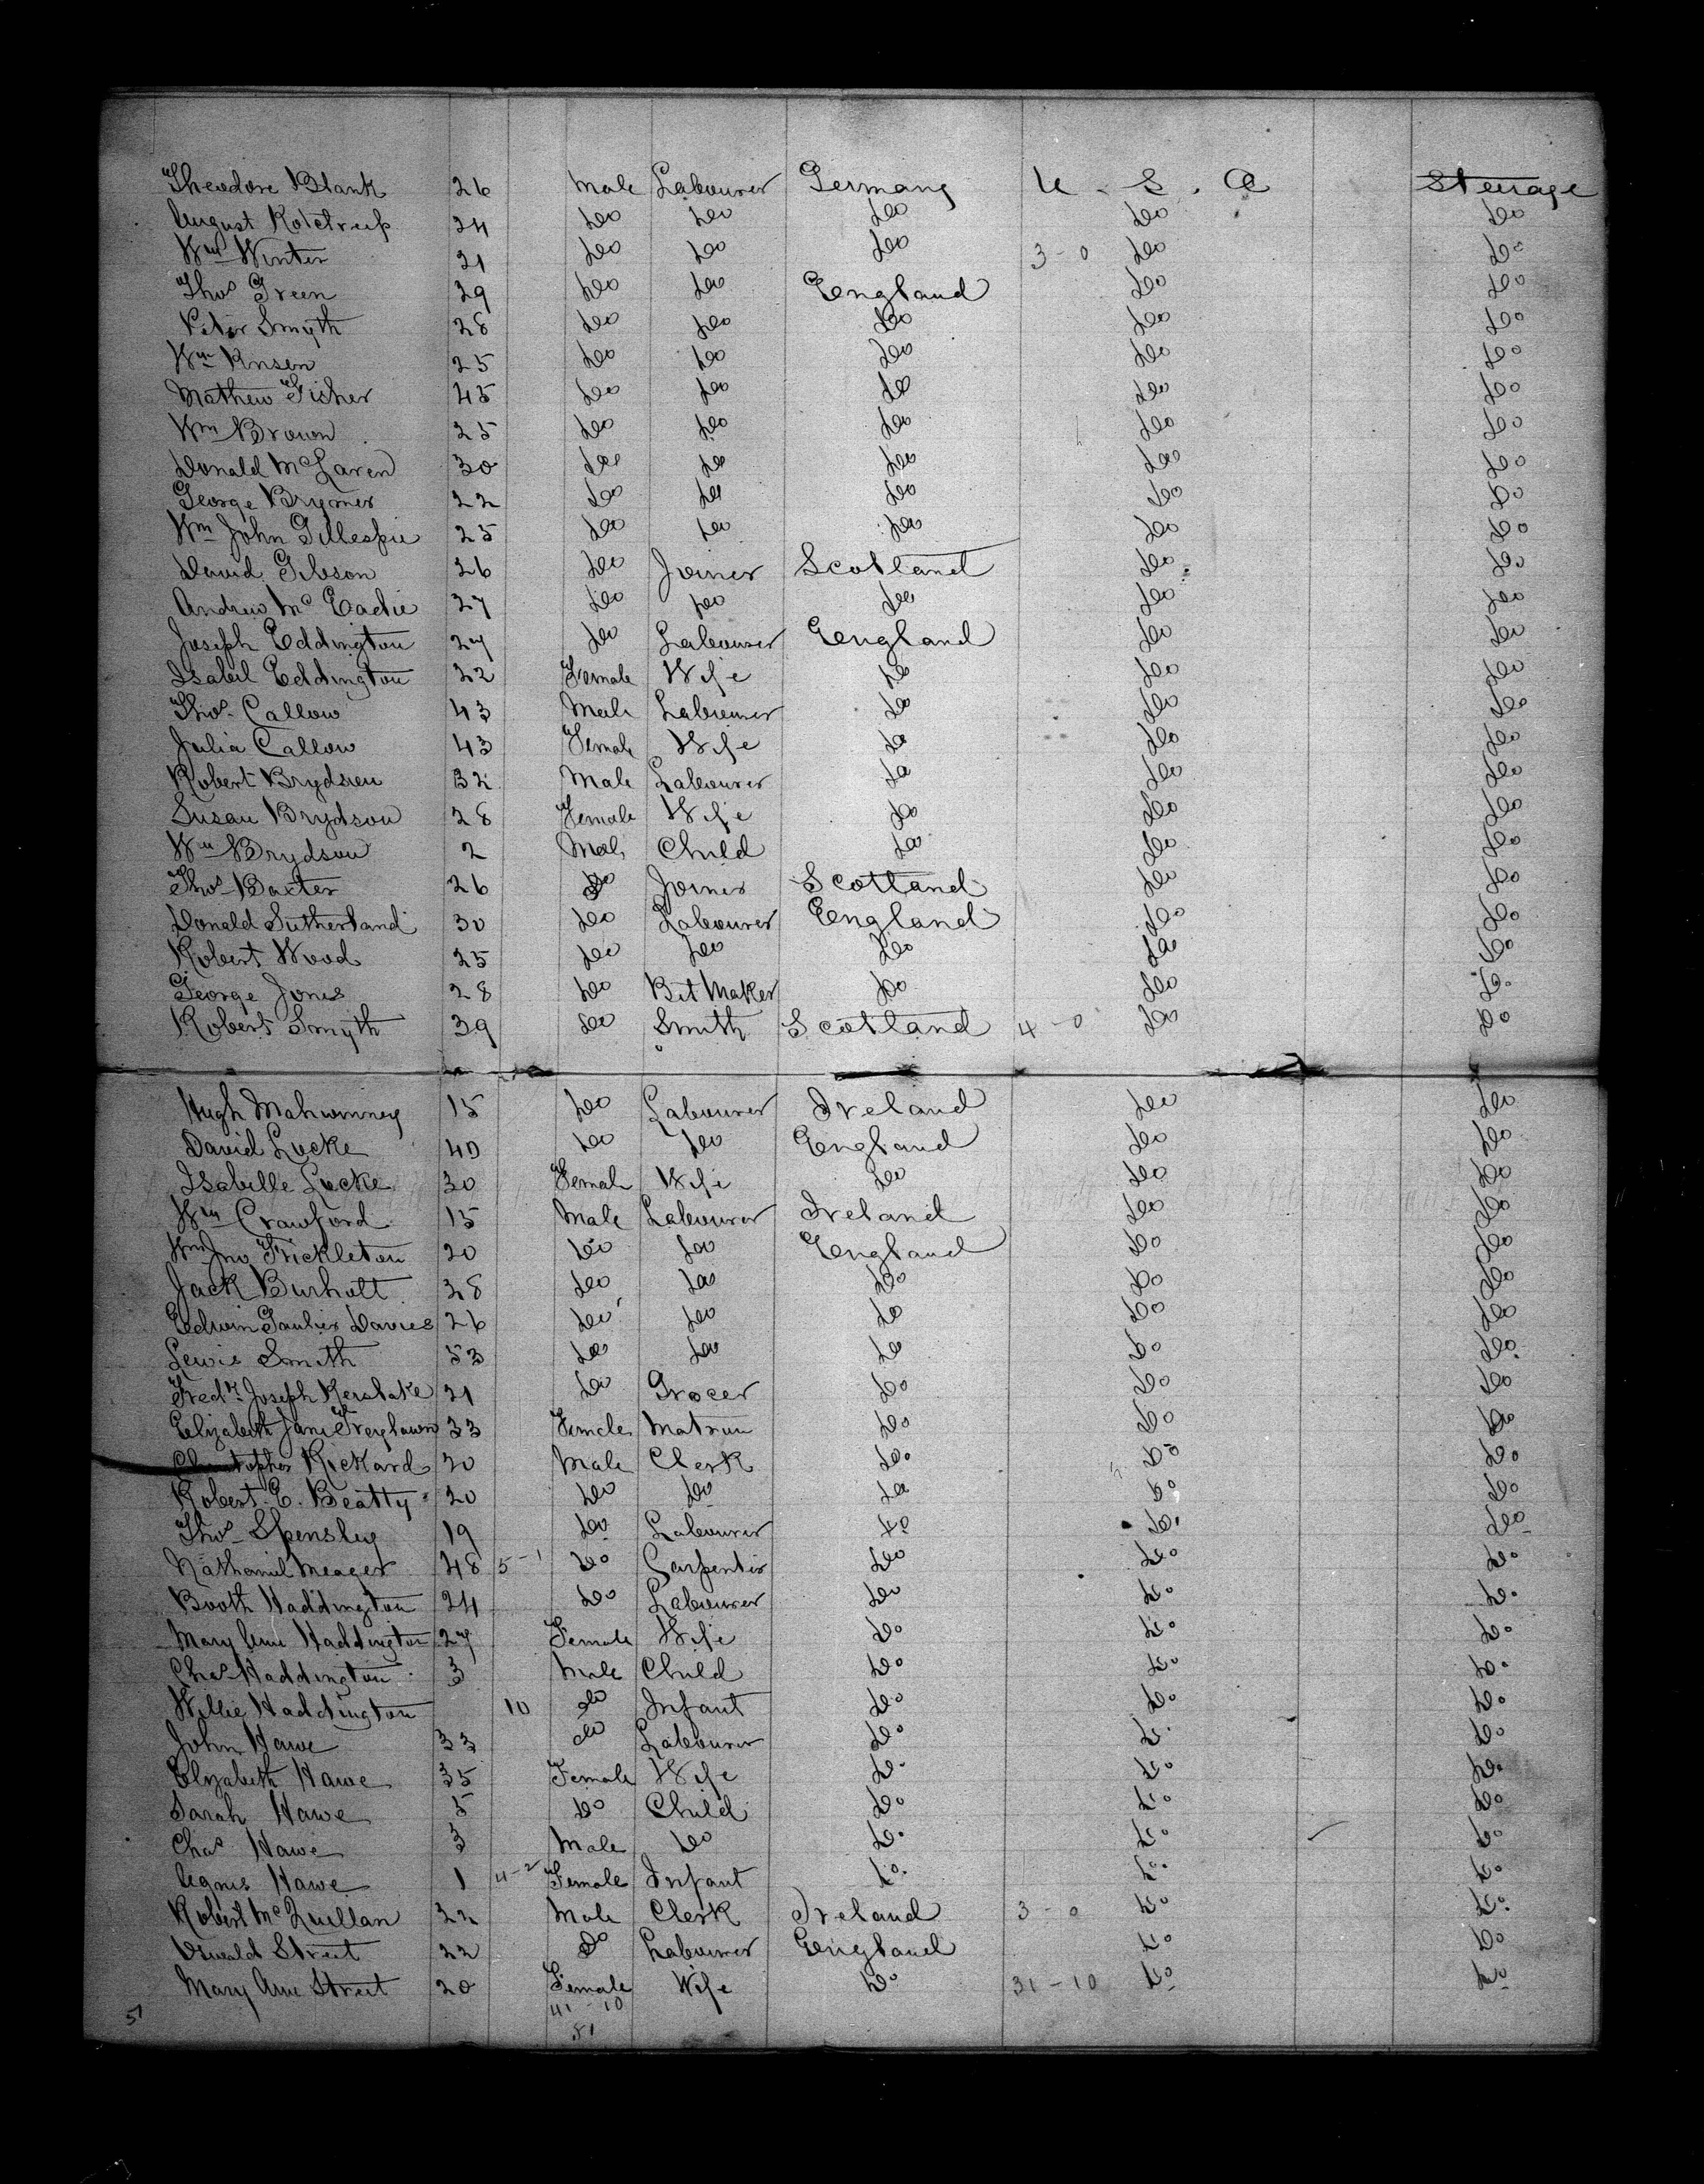 Theodore Blank 26 Male Labourer Germany U. S. A Steerage
August 24 Do Do Do Do Do
Wm Winter 21 Do Do Do 3-0 Do Do
Thos Green 29 Do Do England Do Do
Peter Smyth 28 Do Do Do Do Do
Wm 25 Do Do Do Do Do
Mathew Fisher 45 Do Do Do Do Do
Wm Brown 25 Do Do Do Do Do
Donald McLaren 30 Do Do Do Do Do
George Brymer 22 Do Do Do Do Do
Wm John Gillespie 25 Do Do Do Do Do
David Gibson 26 Do Joiner Scotland Do Do
Andrew Mc Eachie 27 Do Do Do Do Do
Joseph Eddington 27 Do Labourer England Do Do
Isabel Eddington 22 Female Wife Do Do Do
Thos. Callow 43 Male Labourer Do Do Do
Julia Callow 43 Female Wife Do Do Do
Robert Brydson 32 Male Labourer Do Do Do
Susan Brydson 28 Female Wife Do Do Do
Wm Brydson 2 Male Child Do Do Do
Thos Baxter 26 Do Joiner Scotland Do Do
Donald Sutherland 30 Do Labourer England Do Do
Robert Wood 25 Do Do Do Do Do
George Jones 28 Do Bit Maker Do Do Do
Robert Smyth 39 Do Smith Scotland 4-0 Do Do
Hugh 15 Do Labourer Ireland Do Do
David Lucke 40 Do Do England Do Do
Isabelle Lucke 30 Female Wife Do Do Do
Wm Crawford 15 Male Labourer Ireland Do Do
Wm Jno Frickleton 20 Do Do England Do Do
Jack Burholt 28 Do Do Do Do Do
Edwin Davies 26 Do Do Do Do Do
Lewis Smith 53 Do Do Do Do Do
Fredk Joseph Kerslake 21 Do Grocer Do Do Do
Elizabeth Jane 33 Female Matron Do Do Do
Christopher Rickard 20 Male Clerk Do Do Do
Robert E. Beatty 20 Do Do Do Do Do
Thos Spensley 19 Do Labourer Do Do Do
Nathaniel Meager 48 5-1 Do Carpenter Do Do Do
Booth Haddington 24 Do Labourer Do Do Do
Mary Ann Haddington 27 Female Wife Do Do Do
Chas Haddington 3 Male Child Do Do Do
Willie Haddington 10 do Infant Do Do Do
John Hawe 33 do Labourer Do Do Do
Elizabeth Hawe 35 Female Wife Do Do Do
Sarah Hawe 5 Do Child Do Do Do
Chas Hawe 3 Male Do Do Do Do
Agnes Hawe 1 4-2 Female Infant Do Do Do
Robert McQuillan 22 Male Clerk Ireland 3-0 Do Do
Oswald Street 22 Do Labourer England Do Do
Mary Ann Street 20 Female Wife Do 31-10 Do Do
51 41-10
51